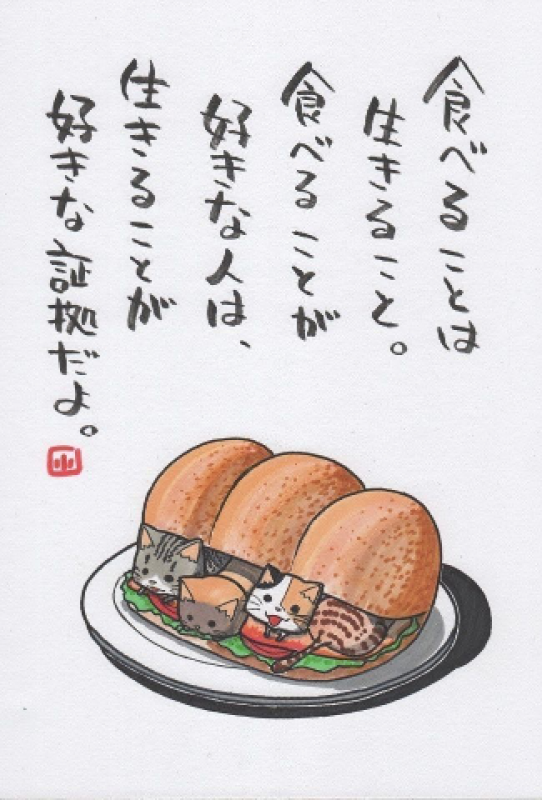 食べることは
生きること。
食べることが
好きな人は、
生きることが
好きな証拠だよ。